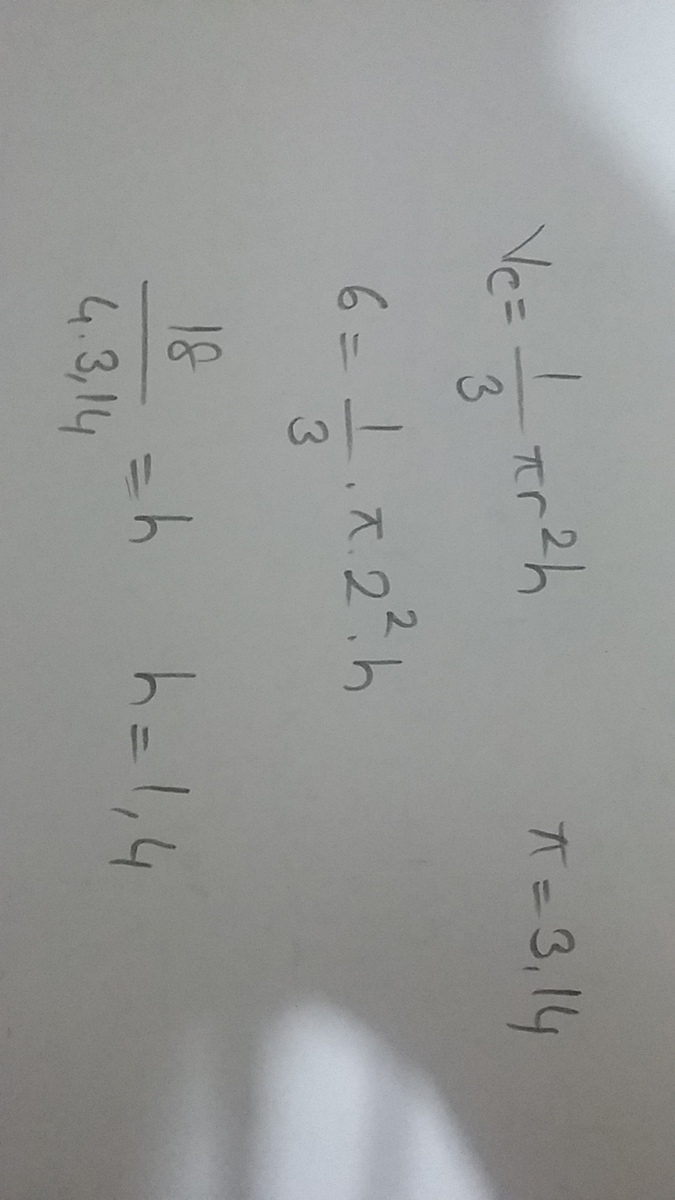 Vc = 1/3 πr²h    π = 3,14
6 = 1/3 . π . 2² . h
18/4.3,14 = h    h = 1,4